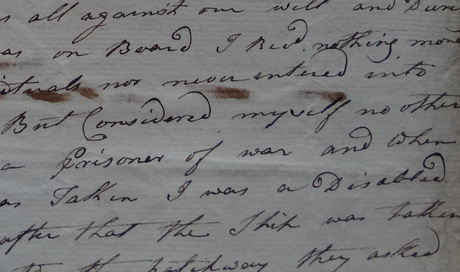 s all against our will and Durin
as on Board I Recd. nothing more
ictuals nor never entered into
But Considered myself no other
a Prisoner of war and when
as Taken I was a Disabled
after that the Ship was taken
to the hatchway they asked